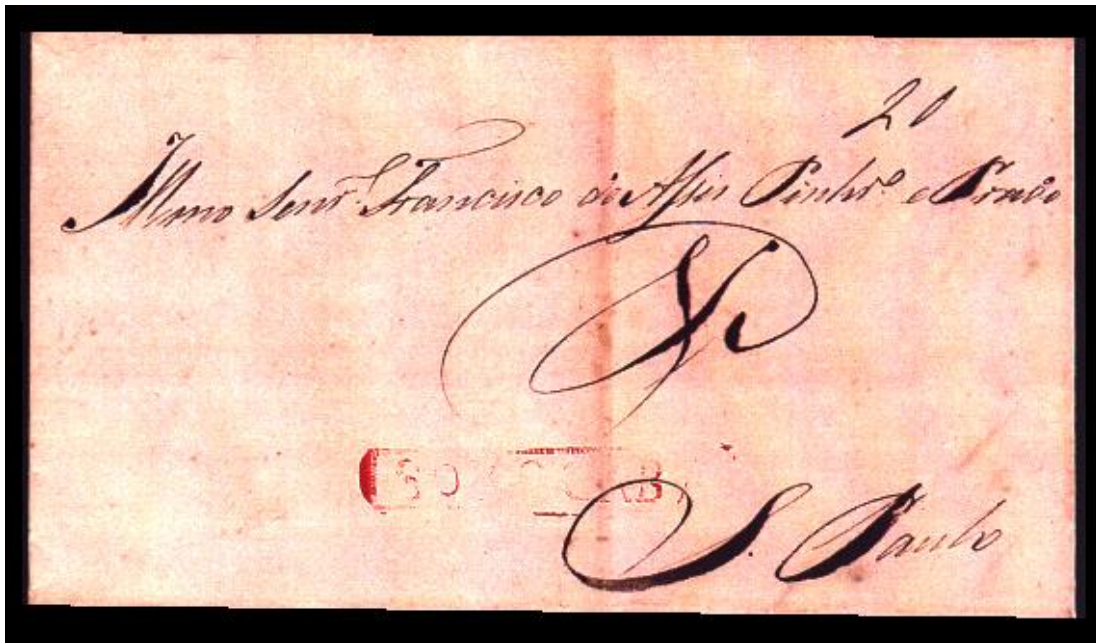 20
Illmo Senr. Francisco de Assis Pinhro. e Prado
S. Paulo